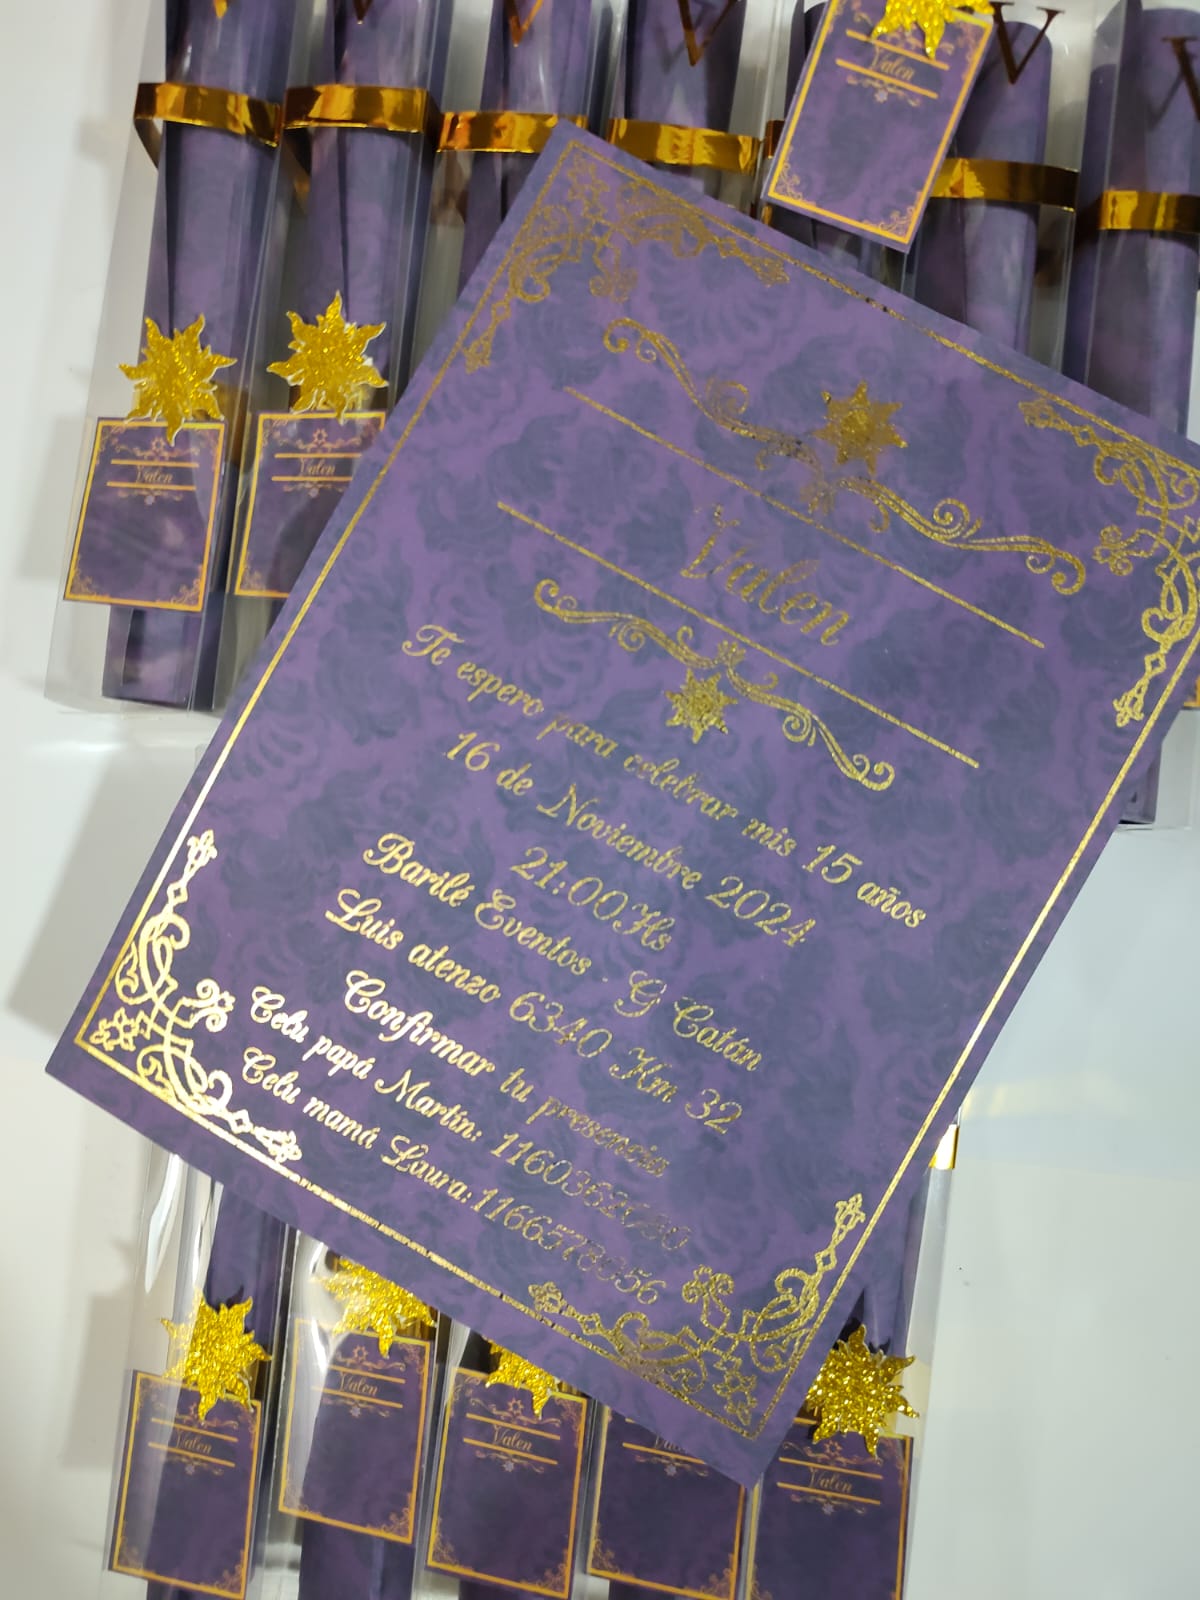 V
V
V
V
V
Valen
Valen
Valen
Valen
Te espero para celebrar mis 15 años
16 de Noviembre 2024
21:00Hs
Barilé Eventos - G Catán
Luis atenzo 6340 Km 32
Confirmar tu presencia
Celu papá Martín:
Celu mamá Laura:
Valen
Valen
Valen
Valen